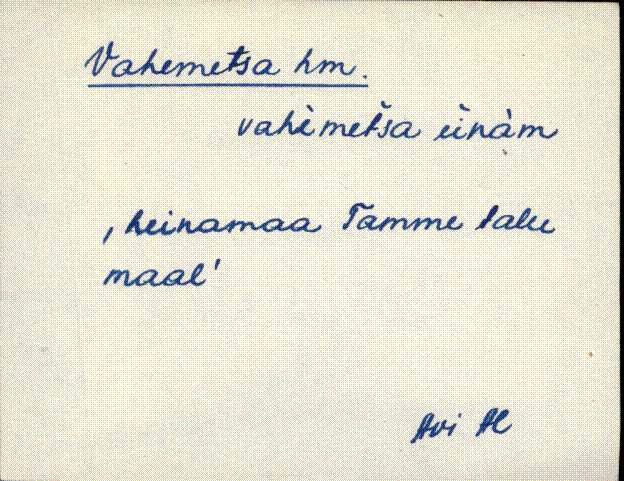 Vahemetsa hm.
vahèmetša einàm
‚heinamaa Tamme talu
maal'
Avi Al